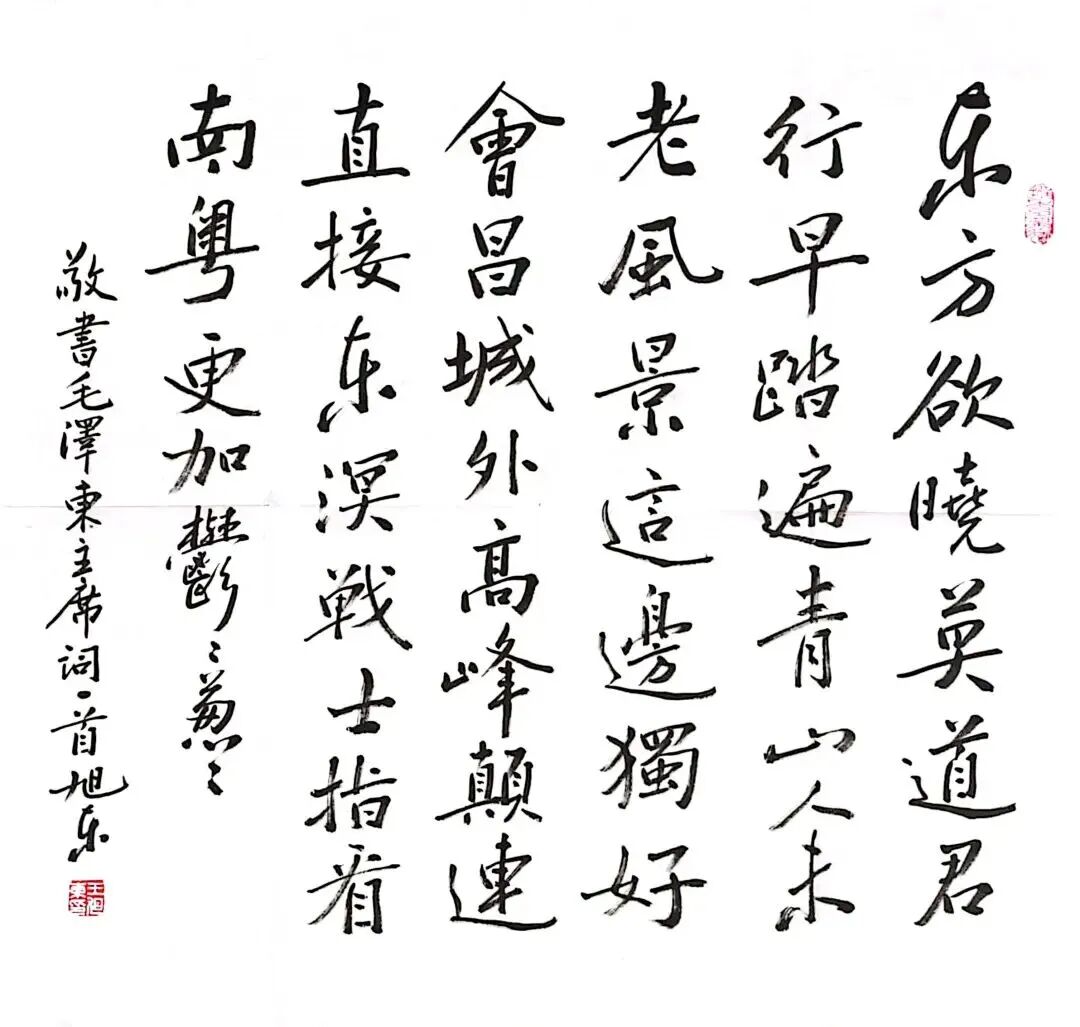 东方欲曉莫道君
行早踏遍青山人未
老風景這邊獨好
會昌城外高峰顛連
直接东溟戦士指看
南粤更加鬱〻葱〻
敬書毛澤東主席詞一首旭东
王旭東印